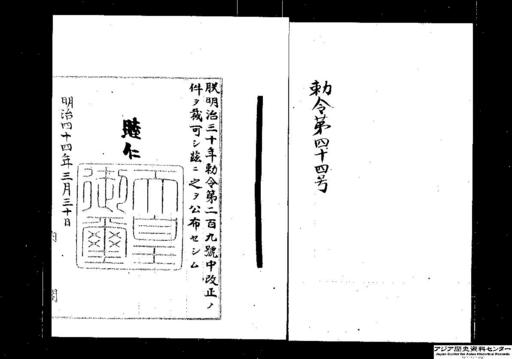 勅令第四十四号
朕明治三十年勅令第二百九號中改正ノ
件ヲ裁可シ茲ニ之ヲ公布セシム
睦仁
天皇
御璽
明治四十四年三月三十日
内閣
アジア歴史資料センター
Japan Center for Asian Historical Records